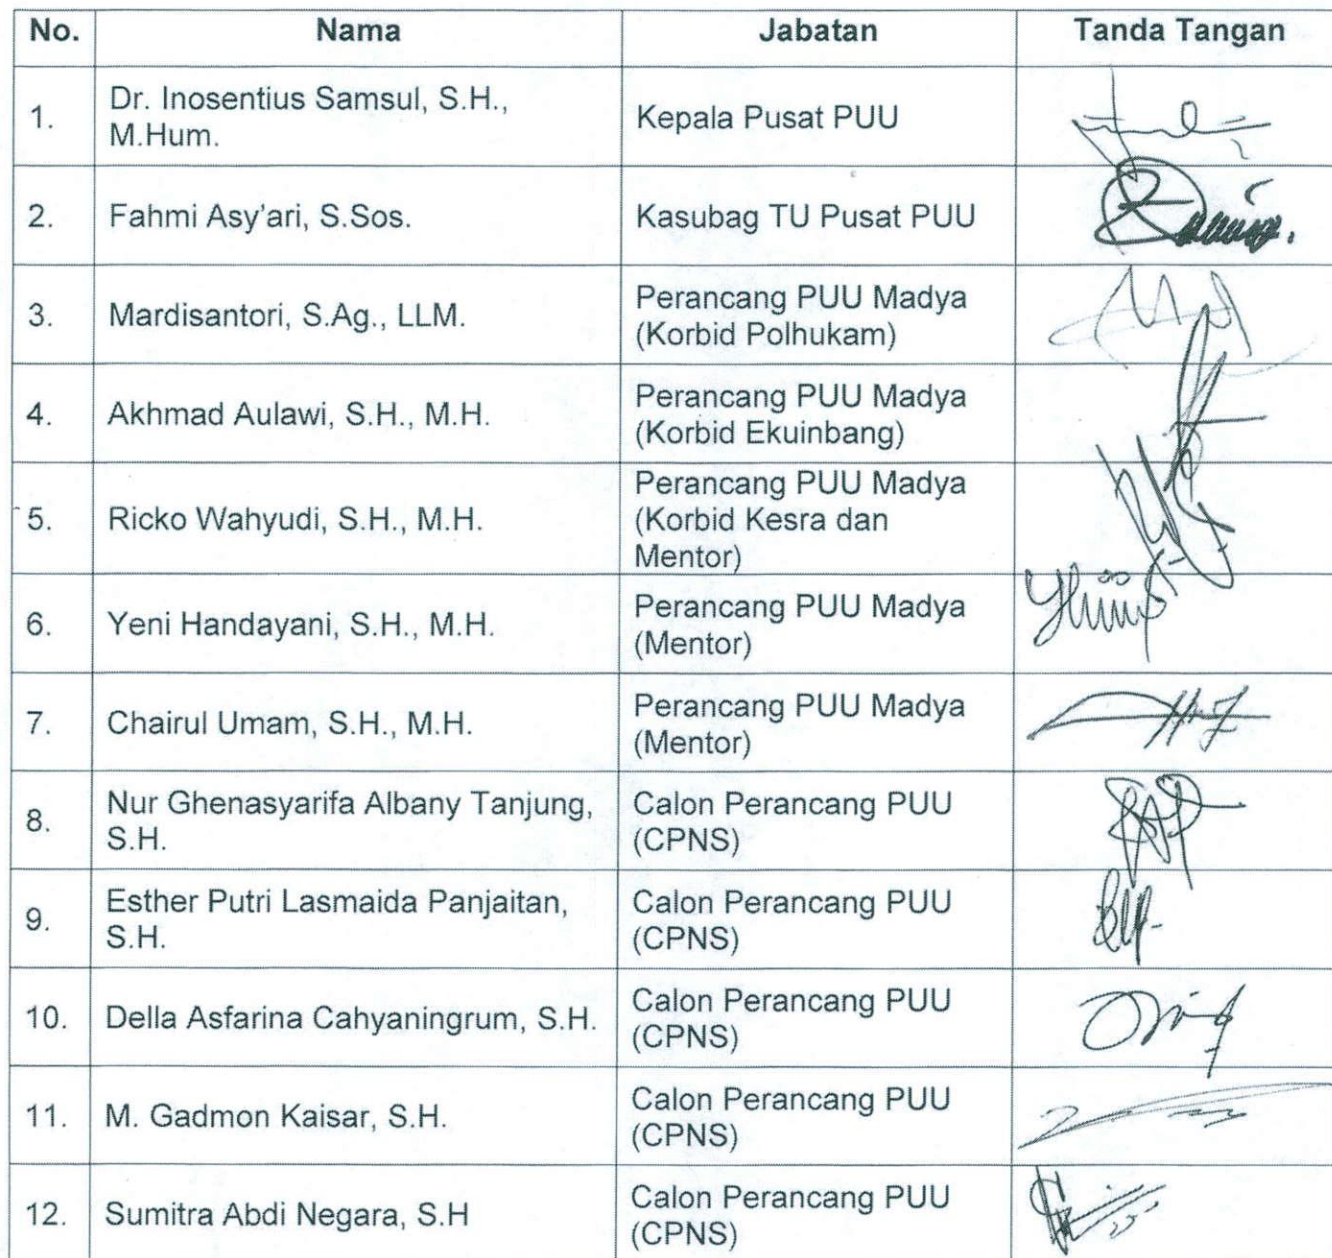 No. Nama Jabatan Tanda Tangan
1. Dr. Inosentius Samsul, S.H., Kepala Pusat PUU
M.Hum.
2. Fahmi Asy'ari, S.Sos. Kasubag TU Pusat PUU
3. Mardisantori, S.Ag., LLM. Perancang PUU Madya
(Korbid Polhukam)
4. Akhmad Aulawi, S.H., M.H. Perancang PUU Madya
(Korbid Ekuinbang)
5. Ricko Wahyudi, S.H., M.H. Perancang PUU Madya
(Korbid Kesra dan
Mentor)
6. Yeni Handayani, S.H., M.H. Perancang PUU Madya
(Mentor)
7. Chairul Umam, S.H., M.H. Perancang PUU Madya
(Mentor)
8. Nur Ghenasyarifa Albany Tanjung, Calon Perancang PUU
S.H. (CPNS)
9. Esther Putri Lasmaida Panjaitan, Calon Perancang PUU
S.H. (CPNS)
10. Della Asfarina Cahyaningrum, S.H. Calon Perancang PUU
(CPNS)
11. M. Gadmon Kaisar, S.H. Calon Perancang PUU
(CPNS)
12. Sumitra Abdi Negara, S.H Calon Perancang PUU
(CPNS)